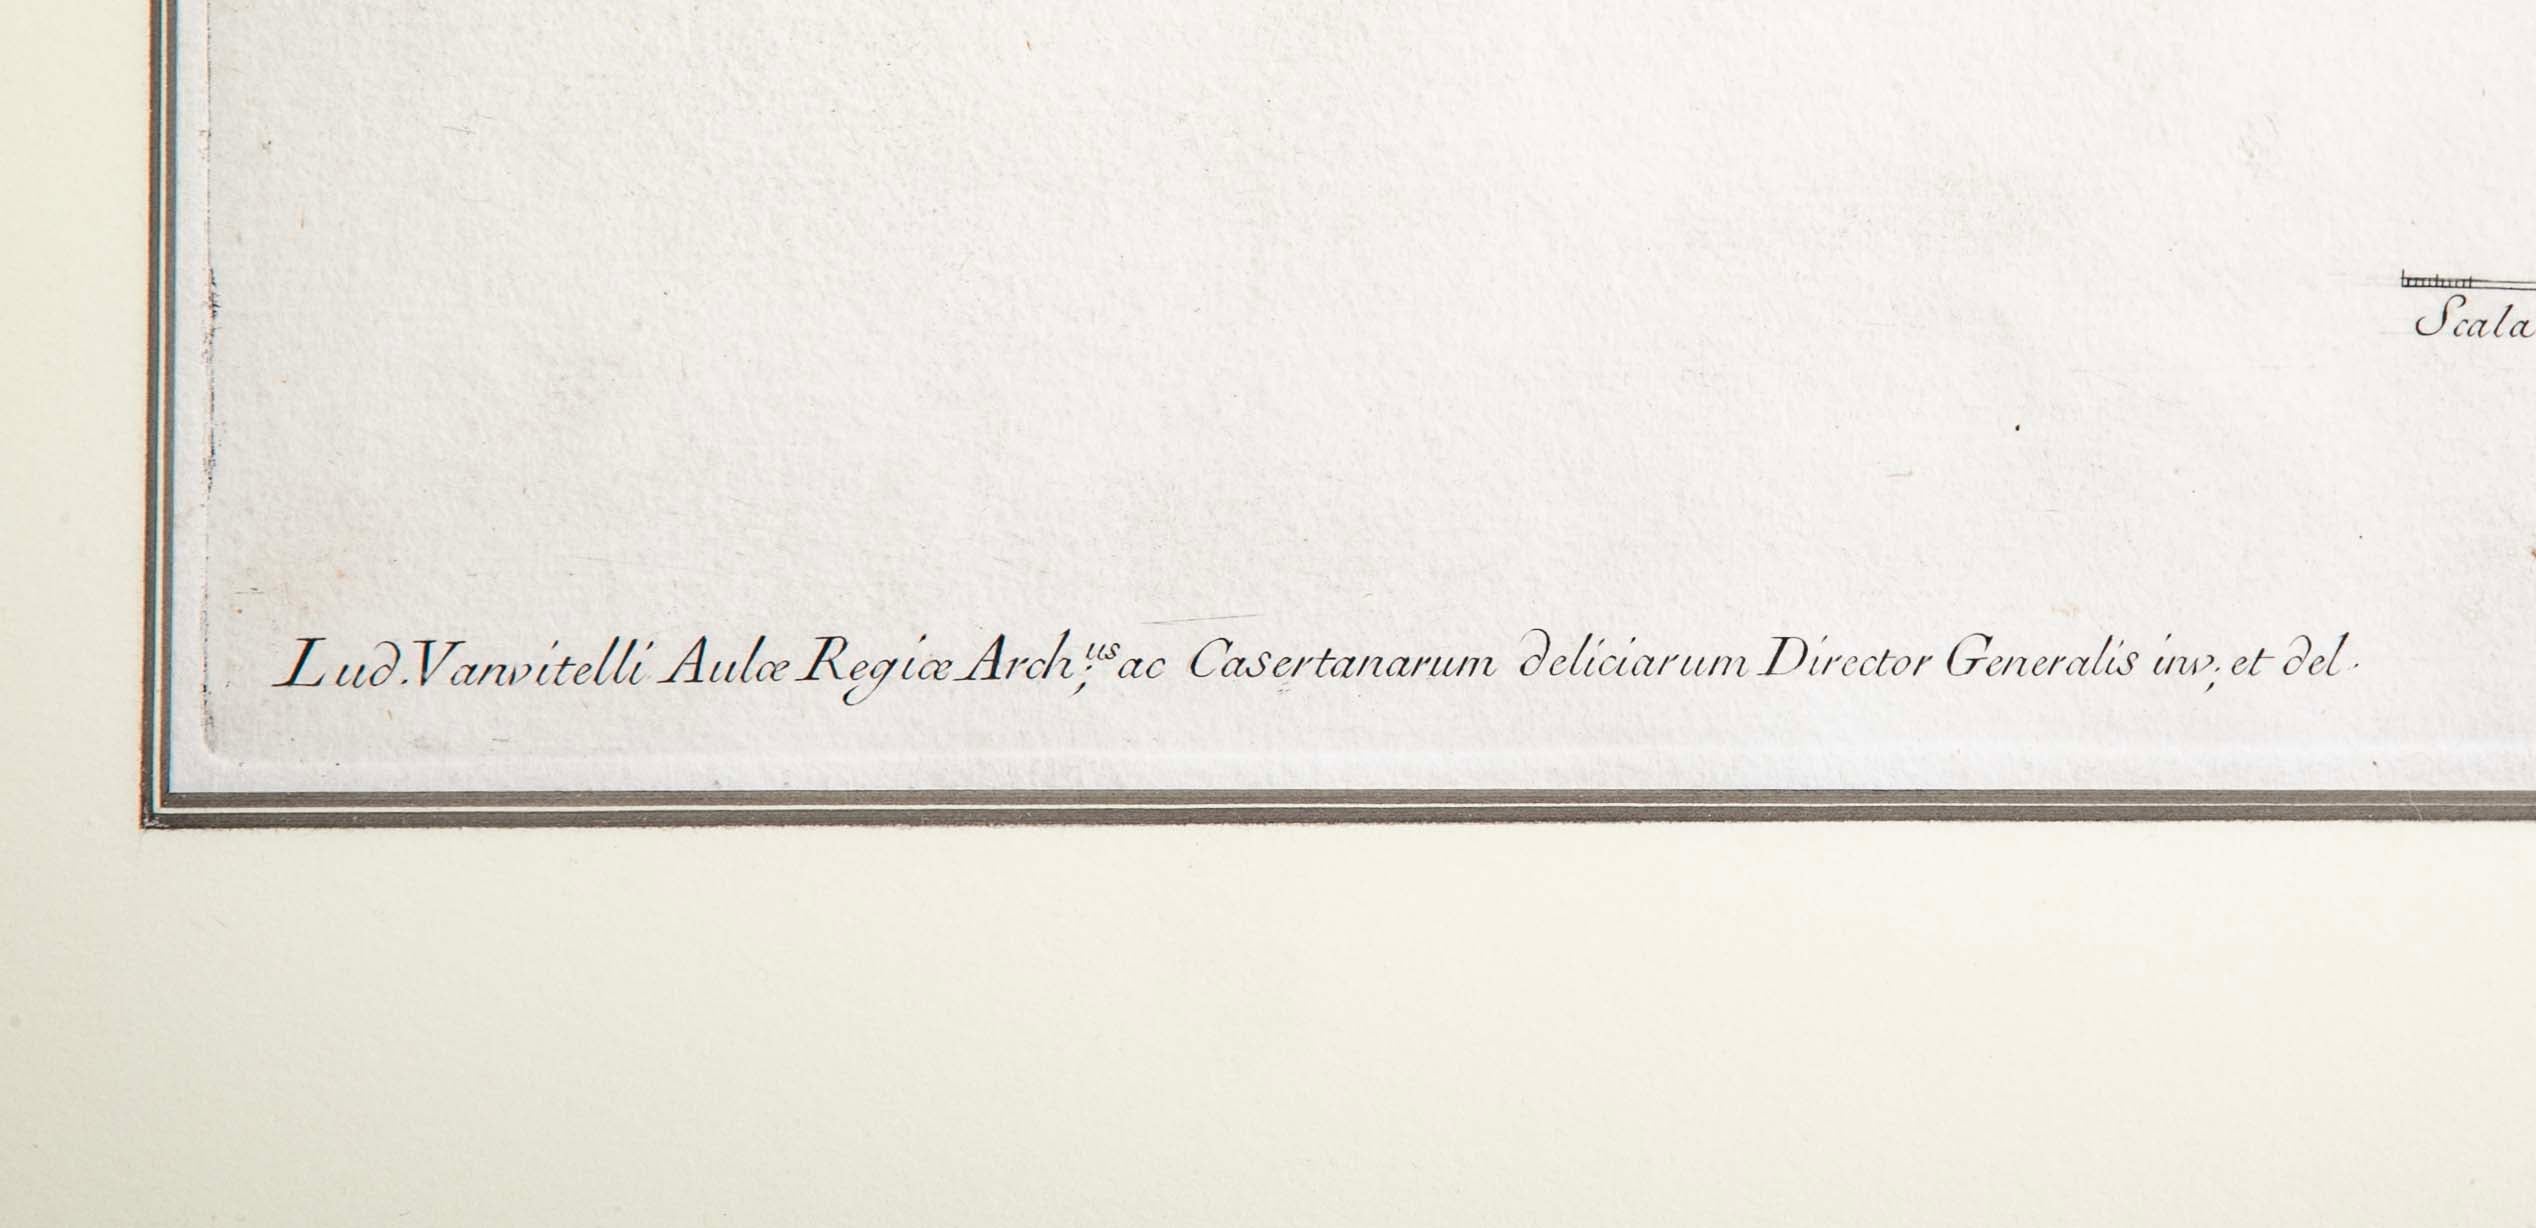 Scala
Lud. Vanvitelli Aulæ Regiæ Arch;us ac Casertanarum deliciarum Director Generalis inv; et del.